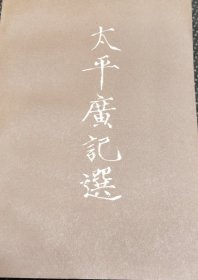 太平廣記選